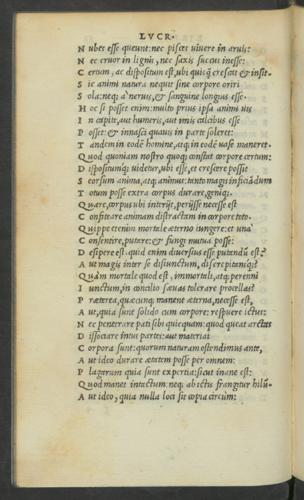 LVCR.
N ubes esse queunt: nec pisces uiuere in aruis:
N ec cruor in lignis, nec saxis succus inesse:
C ertum, ac dispositum est, ubi quicq; crescat & insit.
S ic animi natura nequit sine corpore oriri
S ola: neq; a' neruis, & sanguine longius esse.
H oc si posset enim: multo prius ipsa animi uis
I n capite, aut humeris, aut imis calcibus esse
P osset: & innasci quauis in parte soleret:
T andem in eodē homine, atq; in eodē uase maneret.
Q uod quoniam nostro quoq; constat corpore certum:
D ispositumq; uidetur, ubi esse, et crescere possit
S eorsum anima, atq; animus: tanto magis inficiādum
T otum posse extra corpus durare, geniq;.
Q uare, corpus ubi interijt, perijsse necesse est
C onfiteare animam distractam in corpore toto.
Q uippe etenim mortale æterno iungere: et una
C onsentire, putare: & fungi mutua posse:
D esipere est. quid enim diuersius esse putandū est?
A ut magis inter se disiunctum, discrepitansq;?
Q uā̃ mortale quod est, immortali, atq; perenni
I unctum, in concilio sæuas tolerare procellas?
P ræterea, quæcunq; manent æterna, necesse est,
A ut, quia sunt solido cum corpore: respuere ictus:
N ec penetrare pati sibi quicquam: quod queat arctas
D issociare intus partes: aut materiai
C orpora sunt: quorum naturam ostendimus ante,
A ut ideo durare ætatem posse per omnem:
P lagarum quia sunt expertia: sicut inane est:
Q uod manet intactum: neq; ab ictu fungitur hilū.
A ut ideo, quia nulla loci sit copia circum: